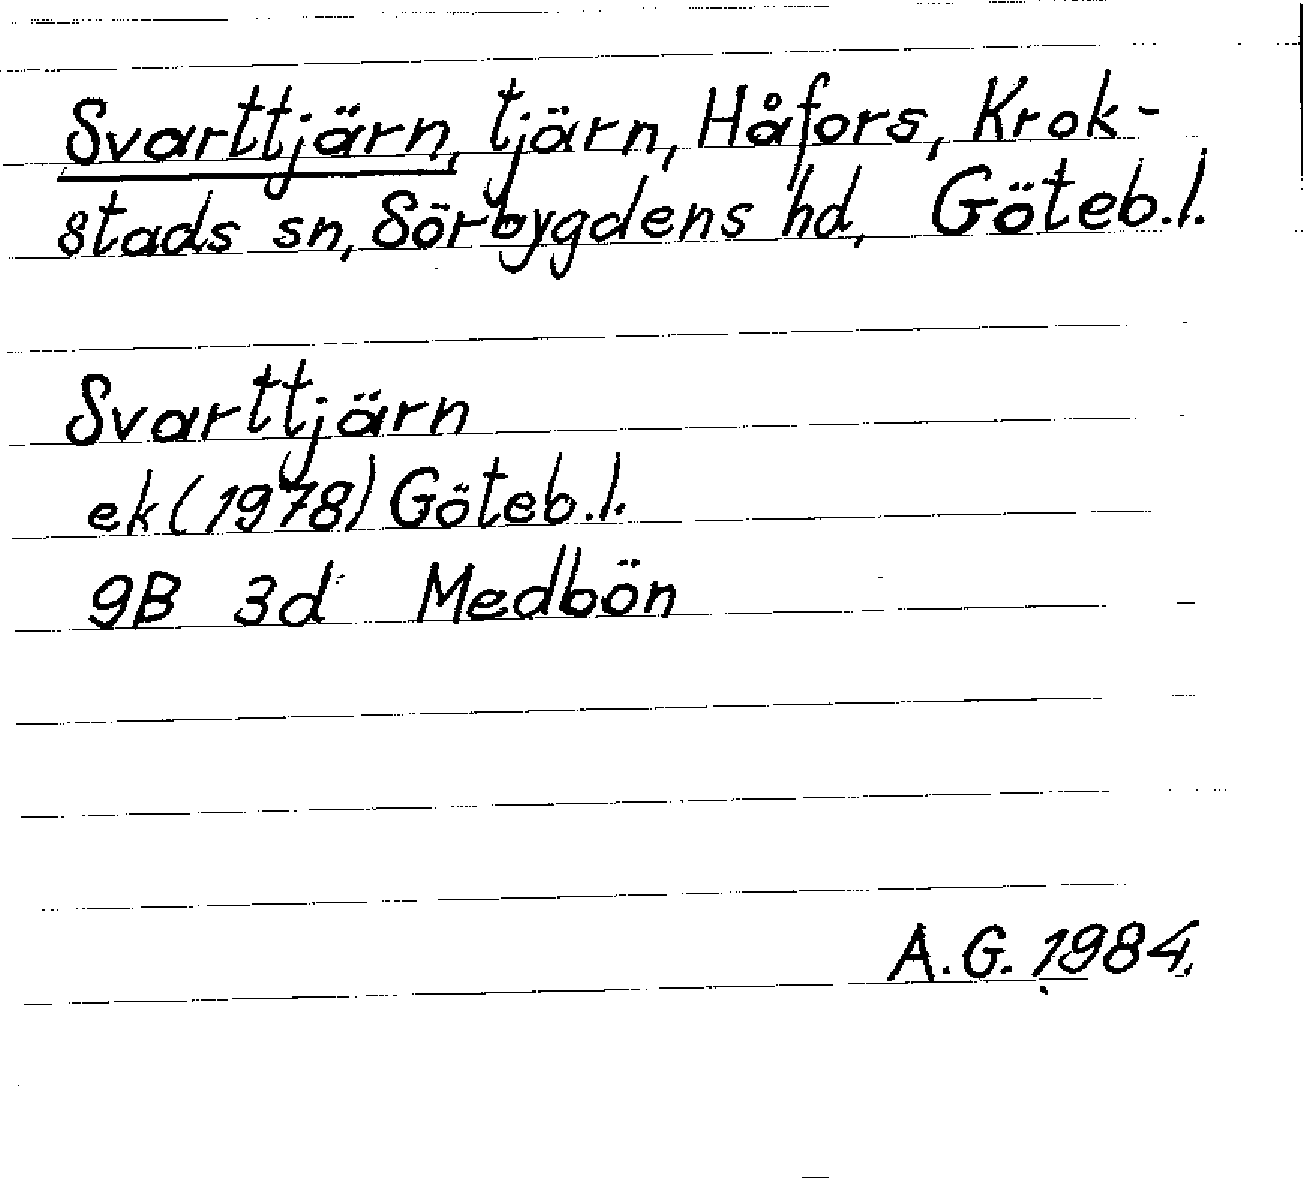 Svarttjärn, tjärn, Håfors, Krok-
stads sn, Sörbygdens hd, Göteb.l.
Svarttjärn
ek (1978) Göteb.l.
9B 3d Medbön
A.G. 1984.